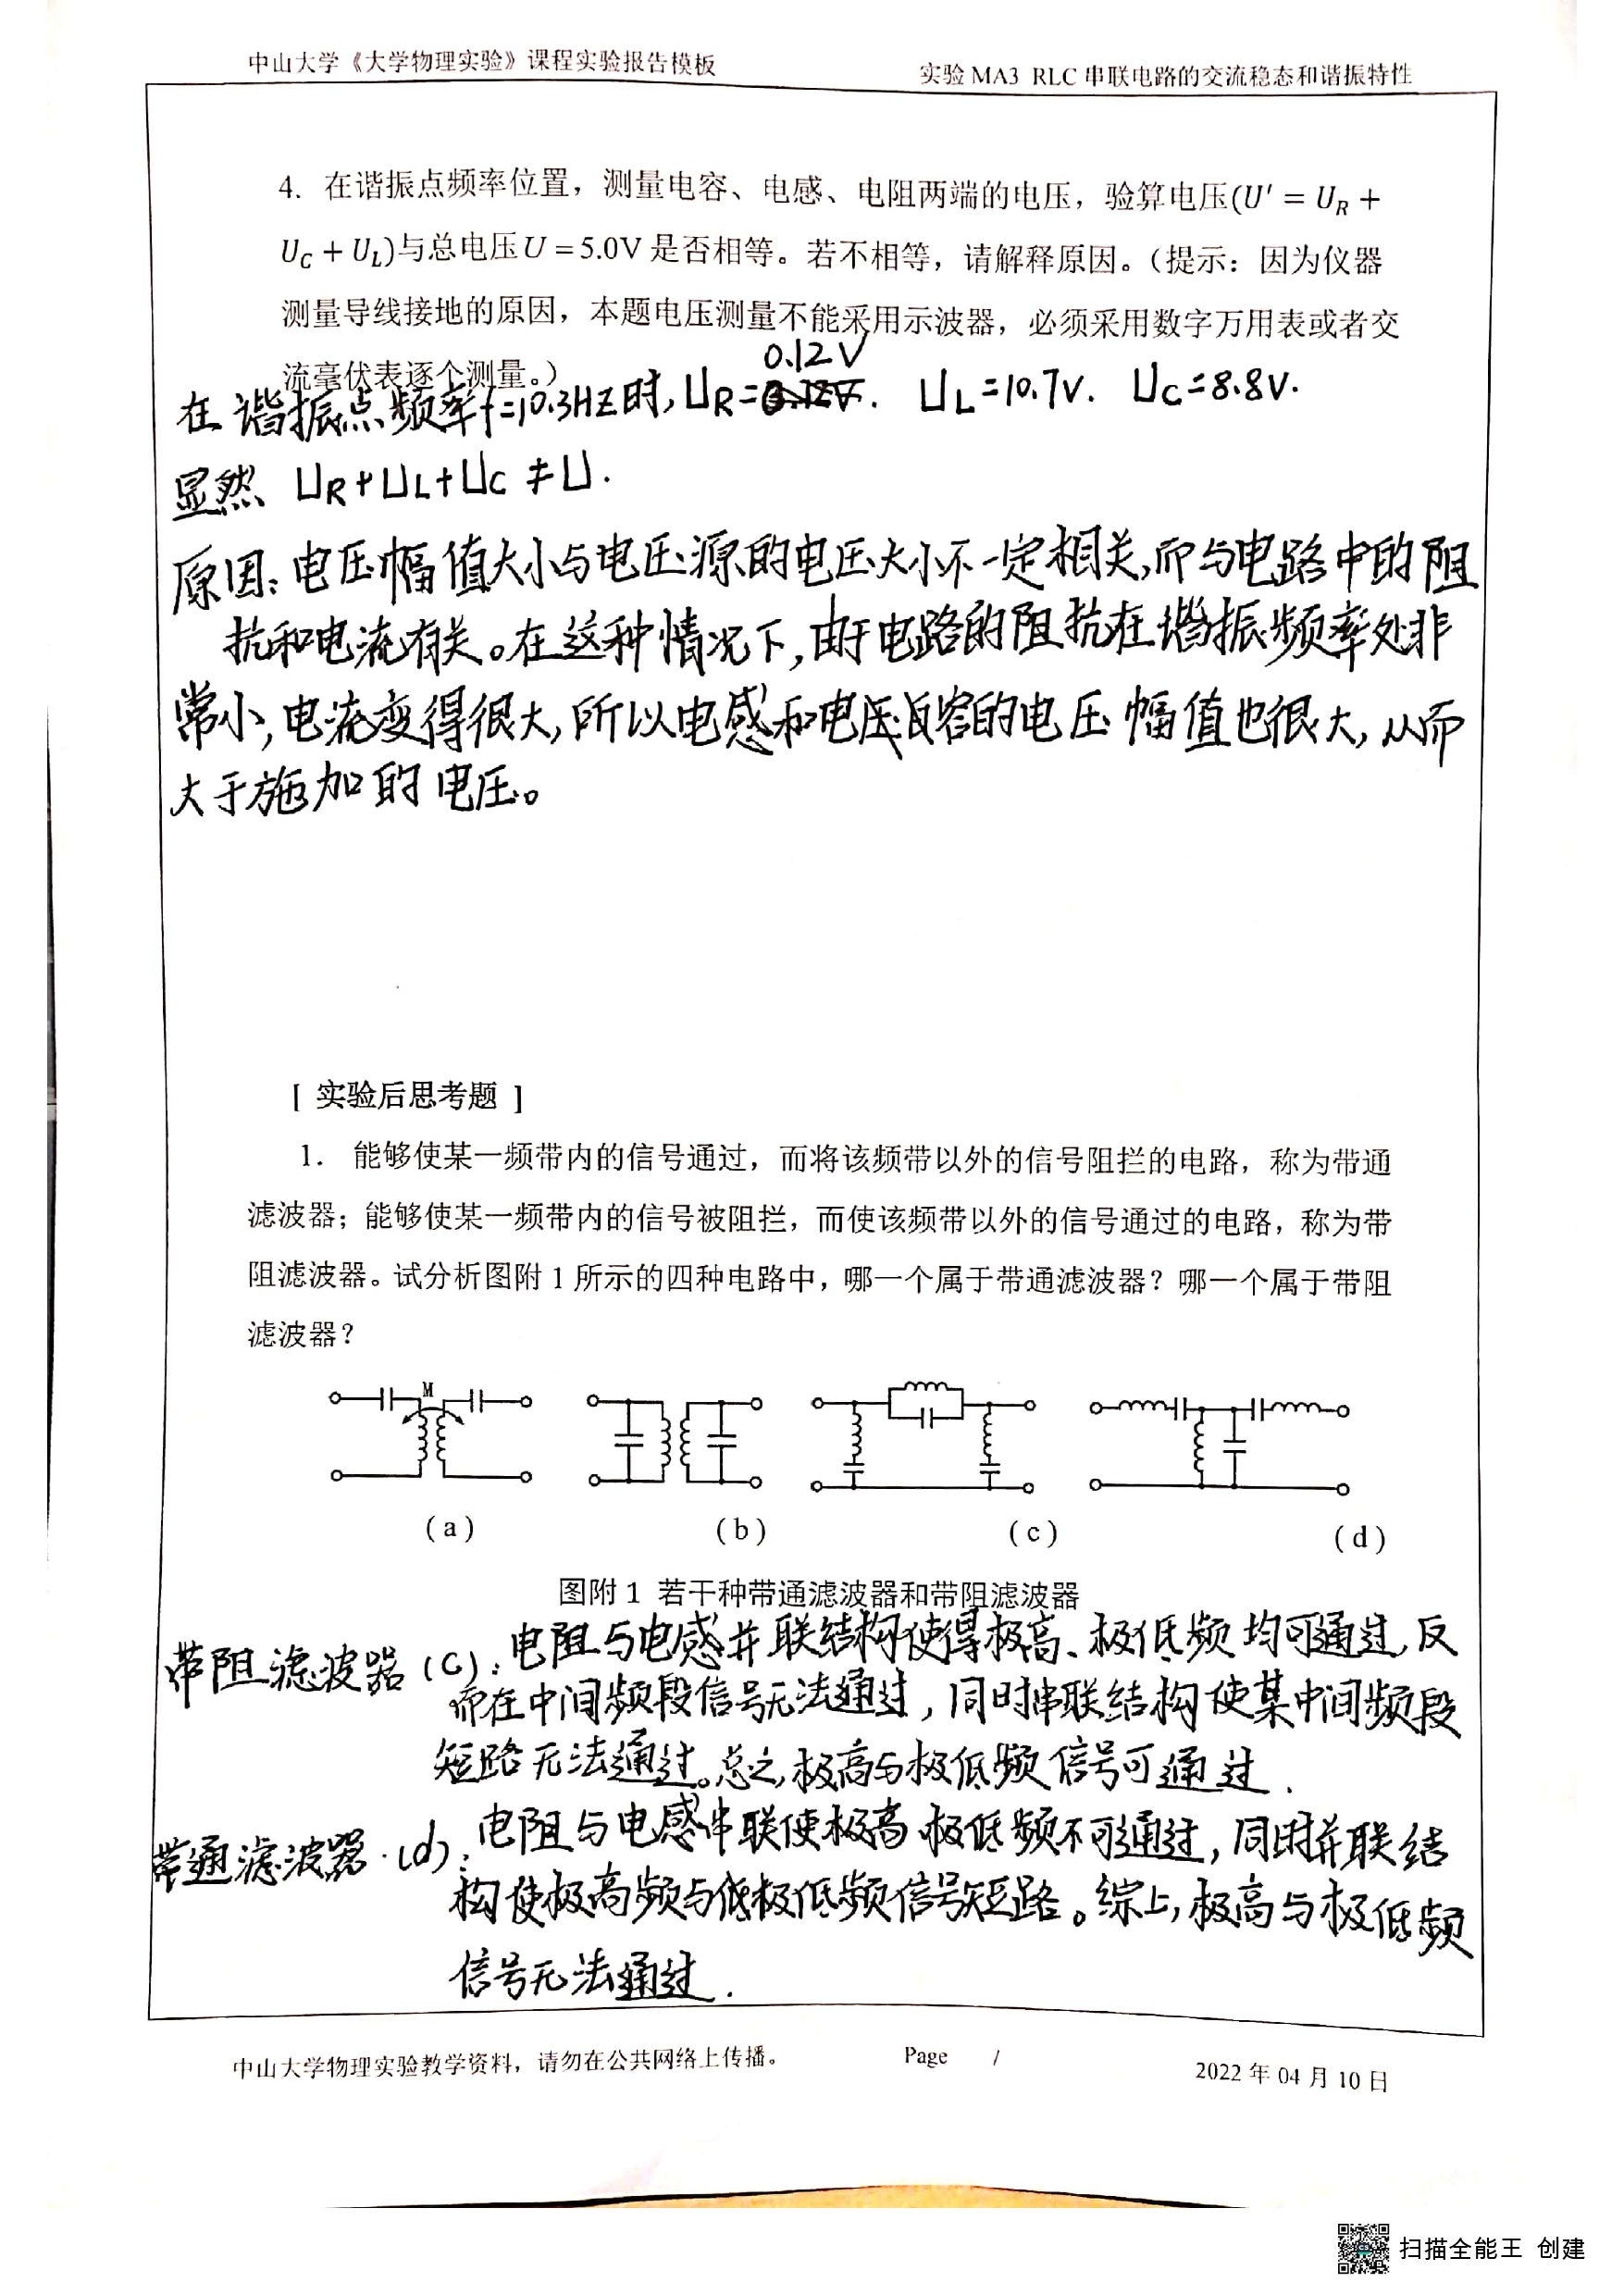 中山大学《大学物理实验》课程实验报告模板
实验 MA3 RLC 串联电路的交流稳态和谐振特性
4. 在谐振点频率位置，测量电容、电感、电阻两端的电压，验算电压(U′ = U_R +
U_C + U_L)与总电压 U = 5.0V 是否相等。若不相等，请解释原因。（提示：因为仪器
测量导线接地的原因，本题电压测量不能采用示波器，必须采用数字万用表或者交
流毫伏表逐个测量。）
0.12V
在谐振点频率f=10.3HZ时, UR= . UL=10.7V. UC=8.8V.
显然 UR+UL+UC ≠U.
原因: 电压幅值大小与电压源的电压大小不一定相关,而与电路中的阻
抗和电流有关。在这种情况下,由于电路的阻抗在谐振频率处非
常小,电流变得很大,所以电感和电容的电压幅值也很大,从而
大于施加的电压。
[ 实验后思考题 ]
1. 能够使某一频带内的信号通过，而将该频带以外的信号阻拦的电路，称为带通
滤波器；能够使某一频带内的信号被阻拦，而使该频带以外的信号通过的电路，称为带
阻滤波器。试分析图附 1 所示的四种电路中，哪一个属于带通滤波器？哪一个属于带阻
滤波器？
M
(a) (b) (c) (d)
图附 1 若干种带通滤波器和带阻滤波器
带阻滤波器(C): 电阻与电感并联结构使得极高、极低频均可通过,反
而在中间频段信号无法通过, 同时串联结构使某中间频段
短路无法通过。总之,极高与极低频信号可通过.
带通滤波器·(d): 电阻与电感串联使极高、极低频不可通过, 同时并联结
构使极高频与极低频信号短路。综上,极高与极低频
信号无法通过.
中山大学物理实验教学资料，请勿在公共网络上传播。 Page / 2022 年 04 月 10 日
扫描全能王 创建